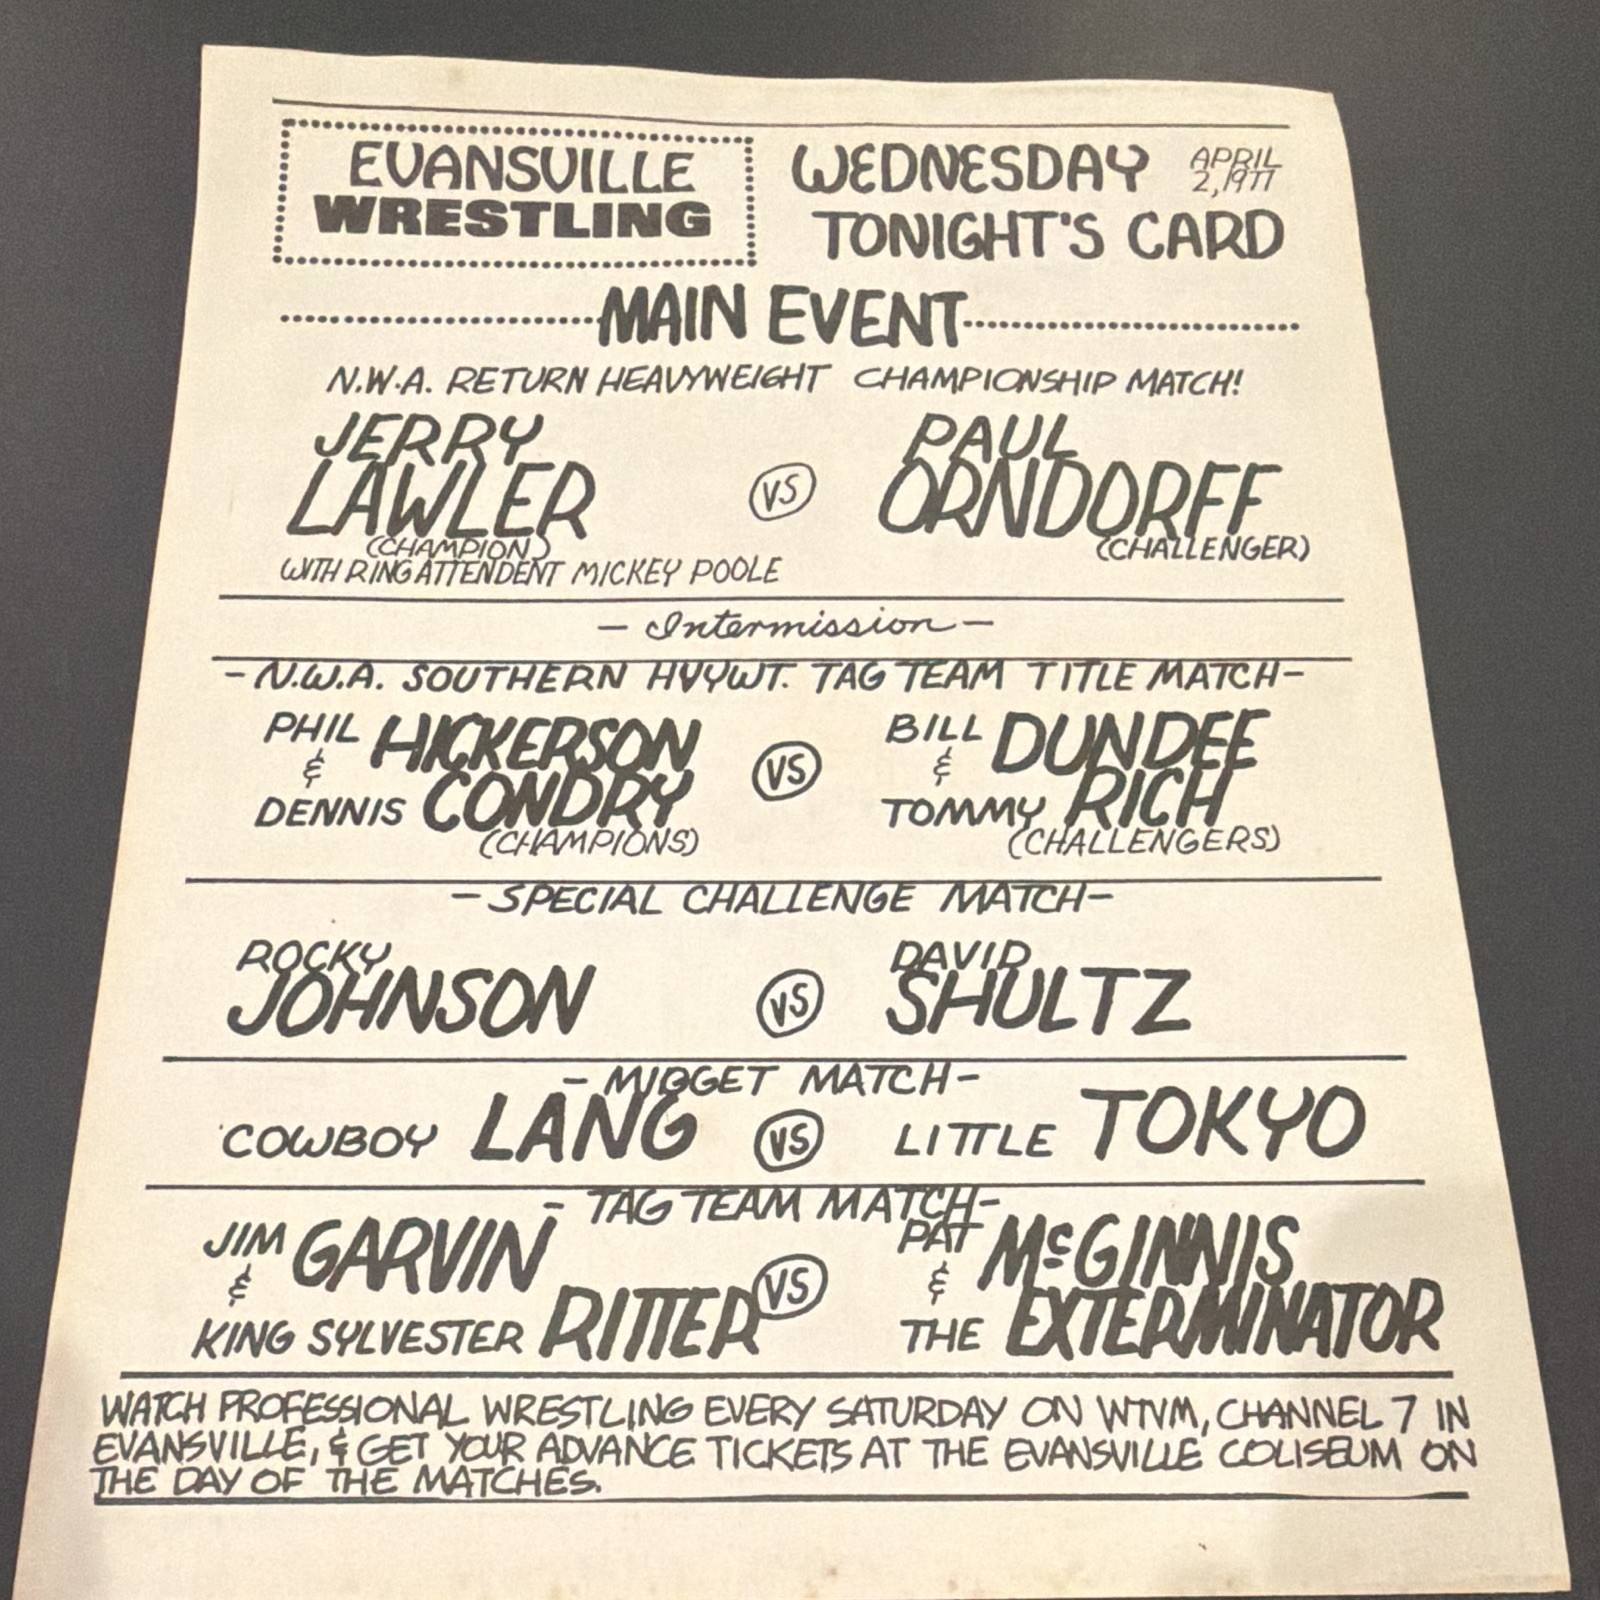 EVANSVILLE
WRESTLING
WEDNESDAY APRIL 2, 1977
TONIGHT'S CARD
MAIN EVENT
N.W.A. RETURN HEAVYWEIGHT CHAMPIONSHIP MATCH!
JERRY LAWLER
(CHAMPION)
WITH RING ATTENDENT MICKEY POOLE
VS
PAUL ORNDORFF
(CHALLENGER)
- Intermission -
- N.W.A. SOUTHERN HVYWT. TAG TEAM TITLE MATCH -
PHIL HICKERSON
&
DENNIS CONDRY
(CHAMPIONS)
VS
BILL DUNDEE
&
TOMMY RICH
(CHALLENGERS)
- SPECIAL CHALLENGE MATCH -
ROCKY JOHNSON
VS
DAVID SHULTZ
- MIDGET MATCH -
COWBOY LANG VS LITTLE TOKYO
- TAG TEAM MATCH -
JIM GARVIN
&
KING SYLVESTER RITTER
VS
PAT McGINNIS
&
THE EXTERMINATOR
WATCH PROFESSIONAL WRESTLING EVERY SATURDAY ON WTVM, CHANNEL 7 IN
EVANSVILLE, & GET YOUR ADVANCE TICKETS AT THE EVANSVILLE COLISEUM ON
THE DAY OF THE MATCHES.